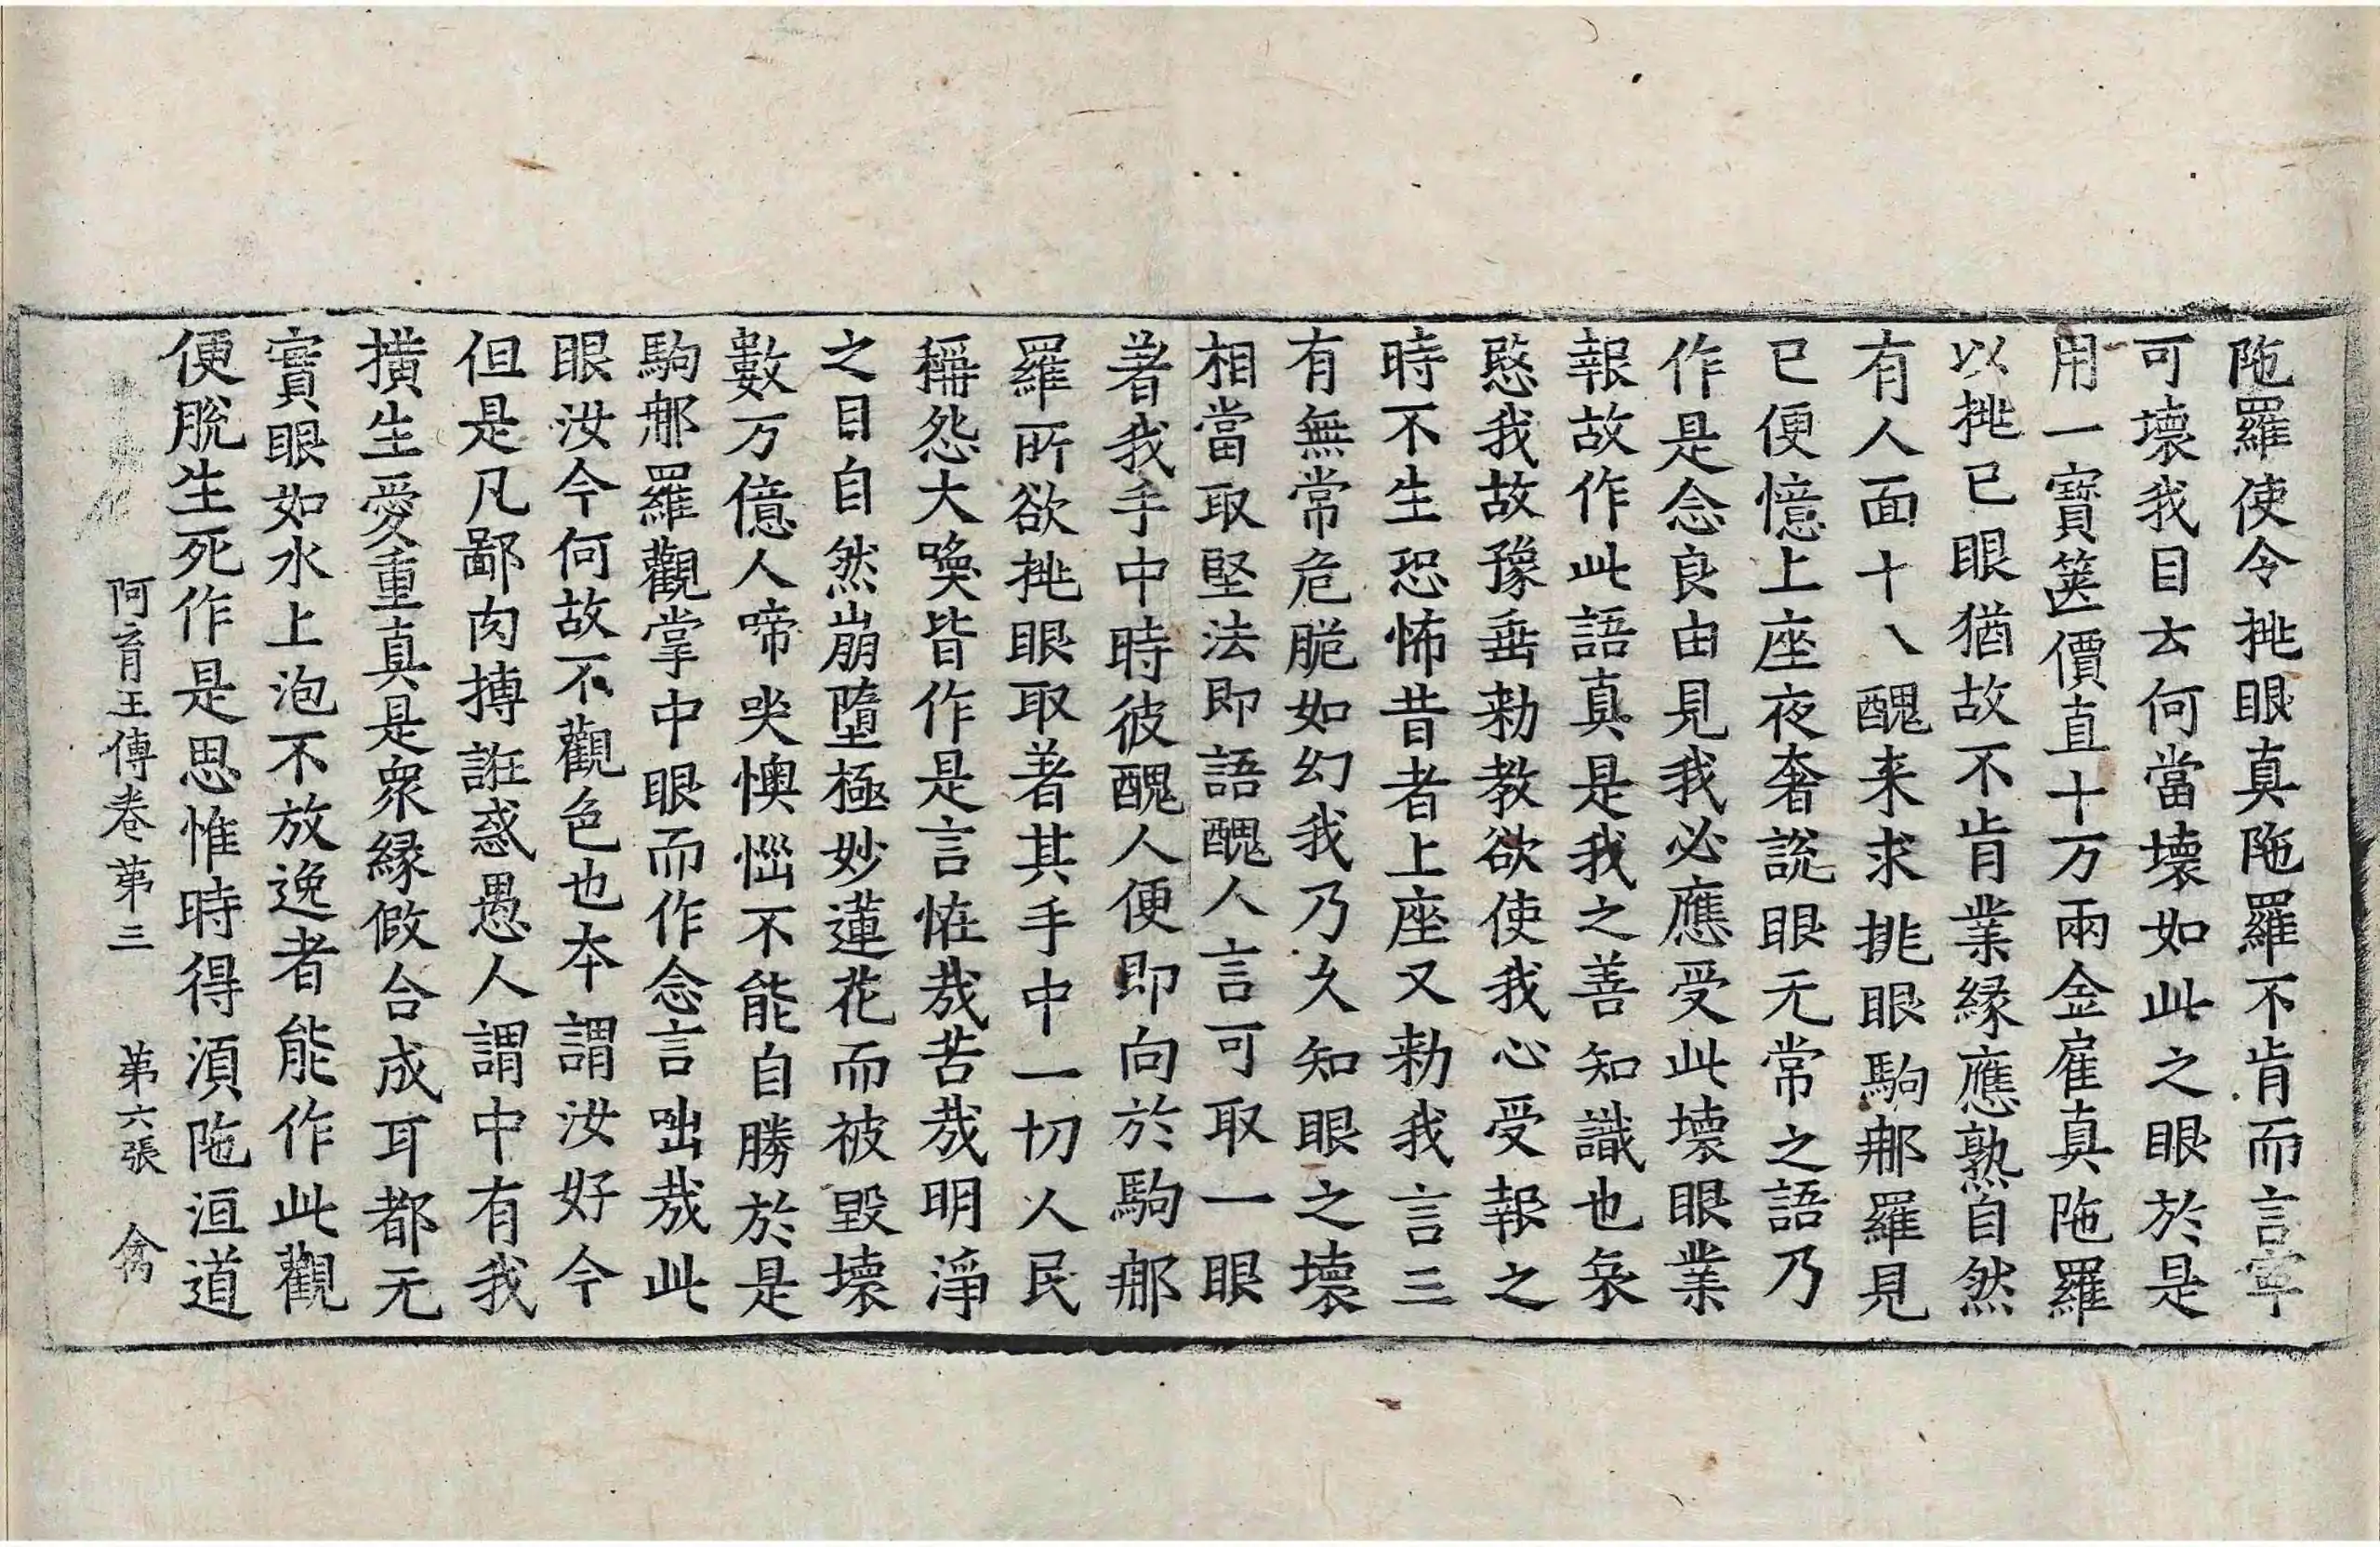 陁羅使令挑眼真陁羅不肯而言寧
可壞我目去何當壞如此之眼於是
用一寶篋價直十万兩金雇真陁羅
以挑已眼猶故不肯業緣應熟自然
有人面十八醜来求挑眼駒那羅見
已便憶上座夜奢說眼无常之語乃
作是念良由見我必應受此壞眼業
報故作此語真是我之善知識也哀
愍我故豫垂勑教欲使我心受報之
時不生恐怖昔者上座又勑我言三
有無常危脆如幻我乃久知眼之壞
相當取堅法即語醜人言可取一眼
著我手中時彼醜人便即向於駒那
羅所欲挑眼取著其手中一切人民
稱怨大喚皆作是言恠哉苦哉明淨
之目自然崩墮極妙蓮花而被毀壞
數万億人啼哭懊惱不能自勝於是
駒那羅觀掌中眼而作念言咄哉此
眼汝今何故不觀色也本謂汝好今
但是凡鄙肉摶誑惑愚人謂中有我
撗生愛重真是衆緣假合成耳都无
實眼如水上泡不放逸者能作此觀
便脫生死作是思惟時得湏陁洹道
阿育王傳卷苐三 苐六張 禽